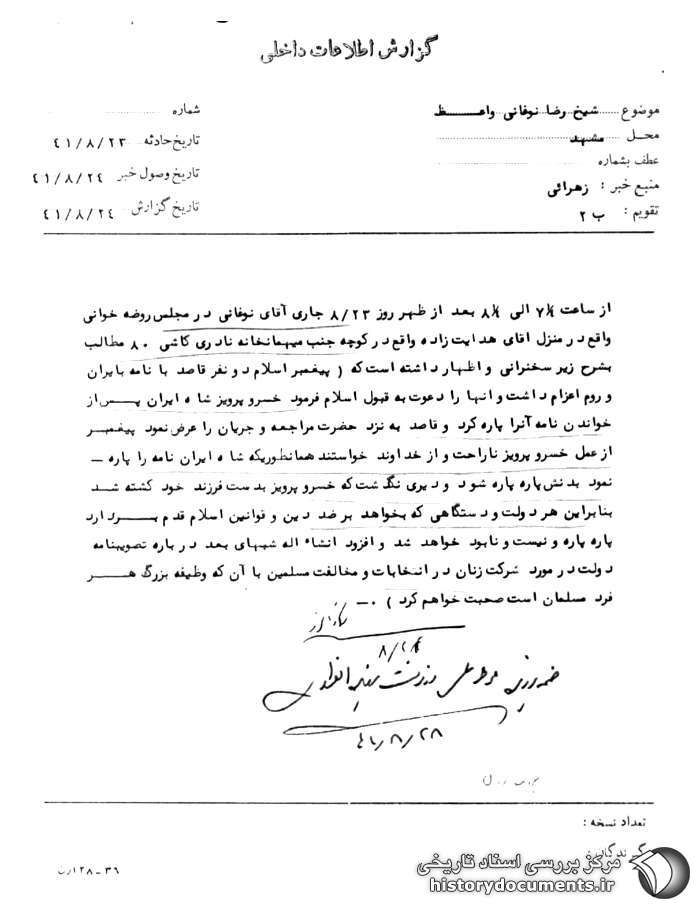 گزارش اطلاعات داخلی
موضوع شیخ رضا نوغانی واعظ
محل مشهد
عطف بشماره
منبع خبر : زهرائی
تقویم : ب ۲
شماره
تاریخ حادثه ۴۱/۸/۲۳
تاریخ وصول خبر ۴۱/۸/۲۴
تاریخ گزارش ۴۱/۸/۲۴
از ساعت ۷¼ الی ۸¼ بعد از ظهر روز ۸/۲۳ جاری آقای نوغانی در مجلس روضه خوانی
واقع در منزل اقای هدایت زاده واقع در کوچه جنب میهمانخانه نادری کاشی ۸۰ مطالب
بشرح زیر سخنرانی و اظهار داشته است که ( پیغمبر اسلام دو نفر قاصد با نامه بایران
و روم اعزام داشت و انها را دعوت به قبول اسلام فرمود خسرو پرویز شاه ایران پس از
خواندن نامه آنرا پاره کرد و قاصد به نزد حضرت مراجعه و جریان را عرض نمود پیغمبر
از عمل خسرو پرویز ناراحت و از خداوند خواستند همانطوریکه شاه ایران نامه را پاره –
نمود بدنش پاره پاره شود و دیری نگذشت که خسرو پرویز بدست فرزند خود کشته شد
بنابراین هر دولت و دستگاهی که بخواهد بر ضد دین و قوانین اسلام قدم بردارد
پاره پاره و نیست و نابود خواهد شد و افزود انشاء اله شبهای بعد در باره تصویبنامه
دولت در مورد شرکت زنان در انتخابات و مخالفت مسلمین با آن که وظیفه بزرگ هر
فرد مسلمان است صحبت خواهم کرد ) ۰–
۸/۲۴
۴۱/۸/۲۸
تعداد نسخه :
گیرندگان :
۳۶ – ۱۲۸
مرکز بررسی اسناد تاریخی
historydocuments.ir